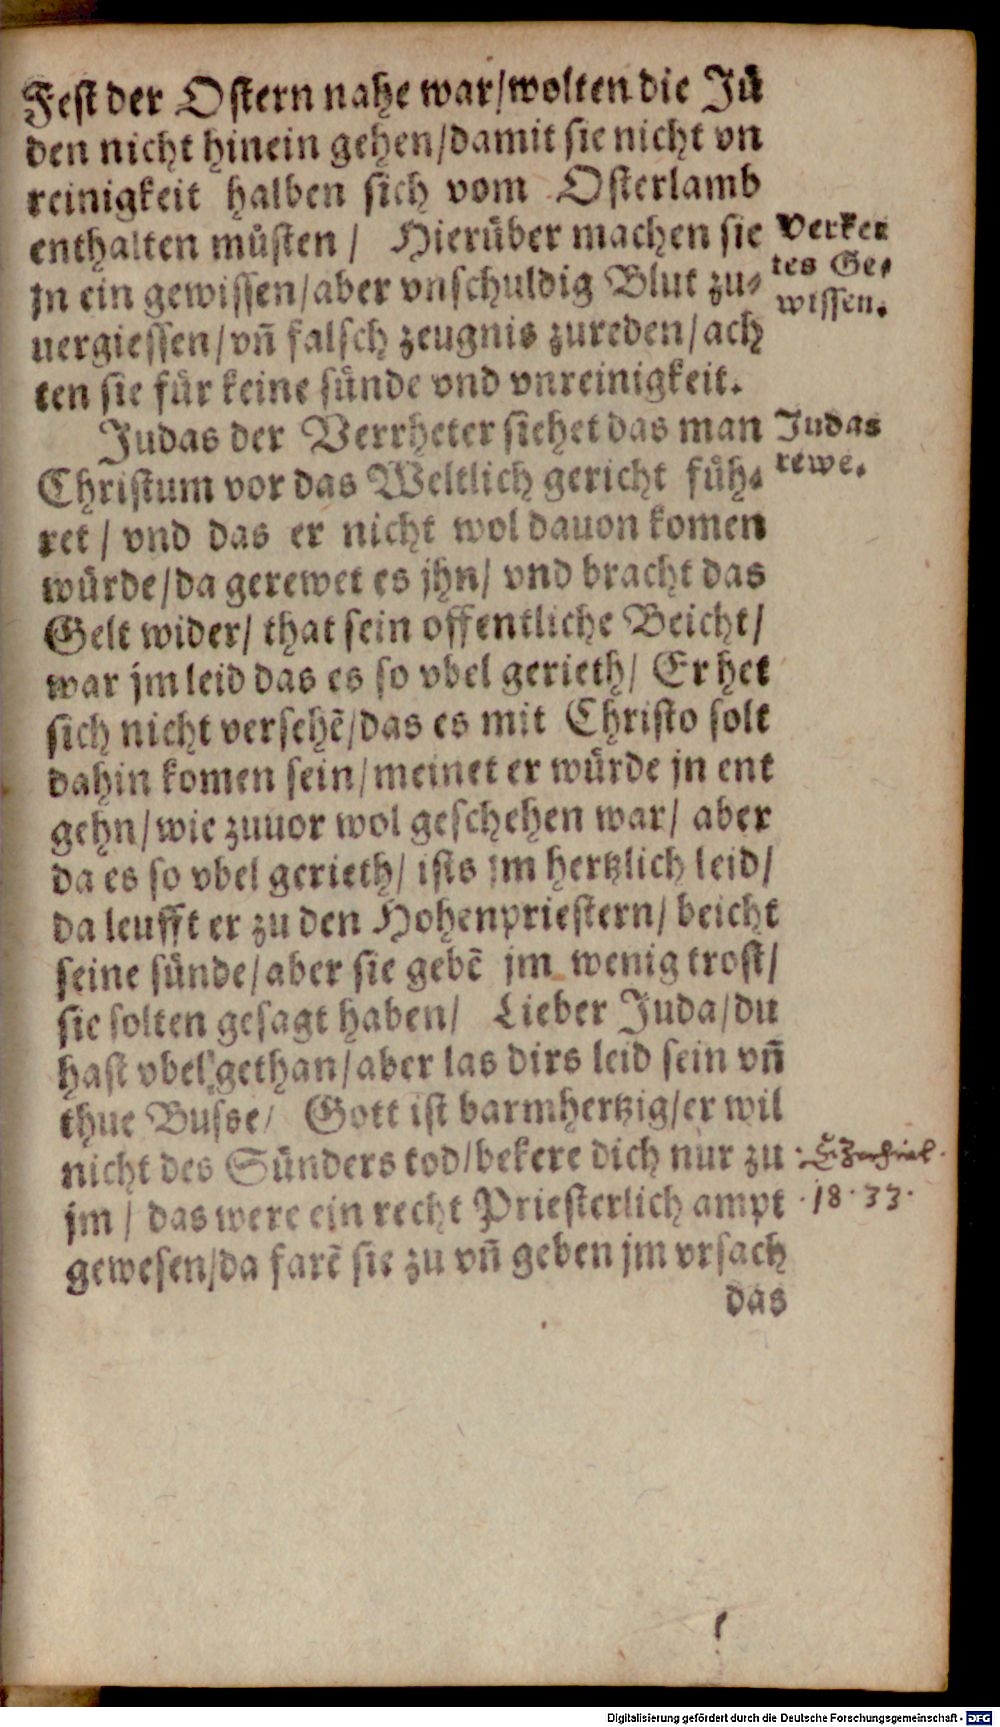 Fest der Ostern nahe war/wolten die Jü
den nicht hinein gehen/damit sie nicht vn
reinigkeit halben sich vom Osterlamb
enthalten müsten / Hierüber machen sie
jn ein gewissen/aber vnschuldig Blut zu-
uergiessen/vñ falsch zeugnis zureden/ach
ten sie für keine sünde vnd vnreinigkeit.
Verker
tes Ge-
wissen.
Judas der Verrheter siehet das man
Christum vor das Weltlich gericht füh-
ret / vnd das er nicht wol dauon komen
würde/da gerewet es jhn/ vnd bracht das
Gelt wider/ that sein offentliche Beicht/
war jm leid das es so vbel gerieth/ Er het
sich nicht versehẽ/das es mit Christo solt
dahin komen sein/meinet er würde jn ent
gehn/wie zuuor wol geschehen war/ aber
da es so vbel gerieth/ ists jm hertzlich leid/
da leufft er zu den Hohenpriestern/ beicht
seine sünde/aber sie gebẽ jm wenig trost/
sie solten gesagt haben/ Lieber Juda/du
hast vbel gethan/aber las dirs leid sein vñ
thue Busse/ Gott ist barmhertzig/er wil
nicht des Sünders tod/bekere dich nur zu
jm / das were ein recht Priesterlich ampt
gewesen/da farẽ sie zu vñ geben jm vrsach
das
Judas
rewe.
Ezechiel.
18. 33.
Digitalisierung gefördert durch die Deutsche Forschungsgemeinschaft - DFG